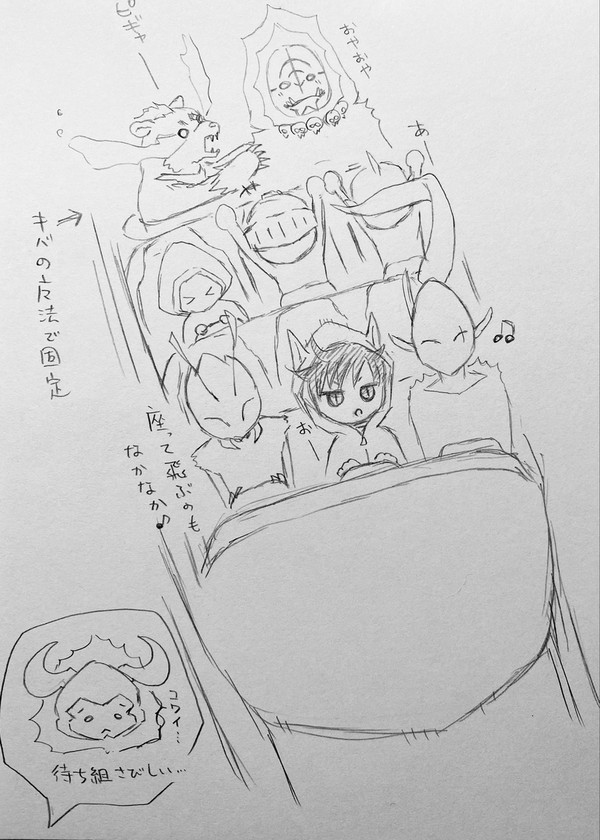 ピギャー
おやおや
あー
キバの魔法で固定
おー
座って飛ぶのも
なかなか♪
コワイ…
待ち組さびしい…